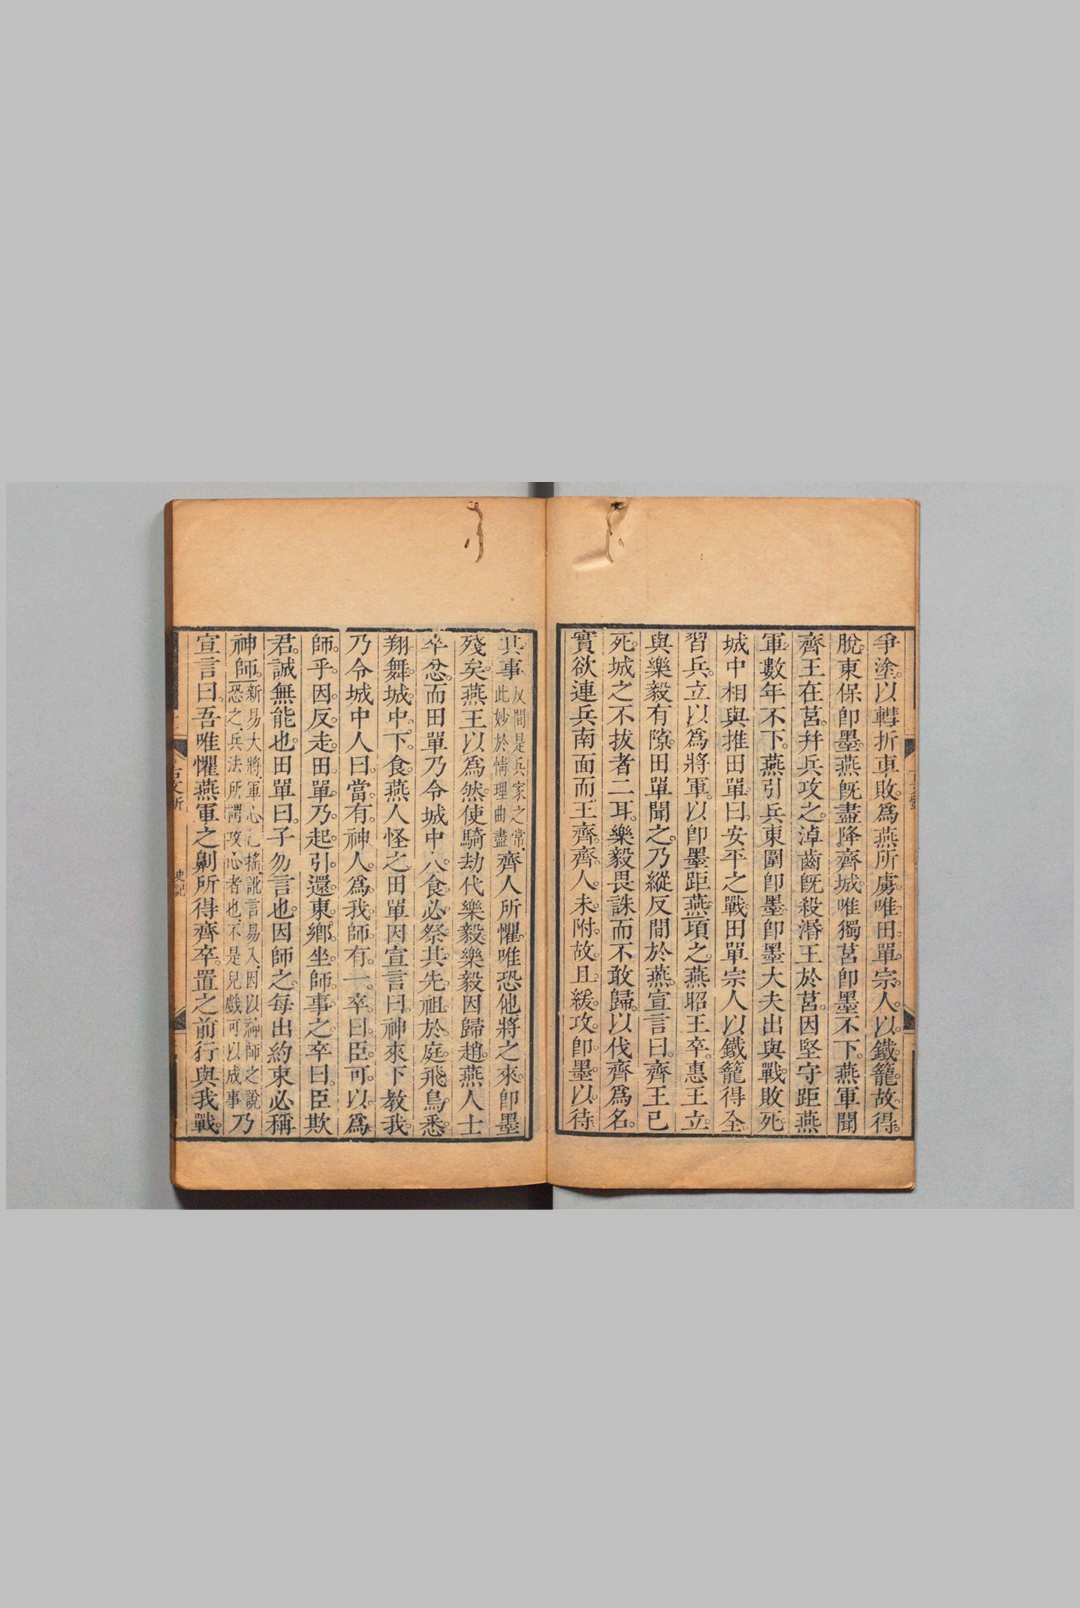 爭塗以轊折車敗爲燕所虜唯田單宗人以鐵籠故得
脫東保卽墨燕旣盡降齊城唯獨莒卽墨不下燕軍聞
齊王在莒幷兵攻之淖齒旣殺湣王於莒因堅守距燕
軍數年不下燕引兵東圍卽墨卽墨大夫出與戰敗死
城中相與推田單曰安平之戰田單宗人以鐵籠得全
習兵立以爲將軍以卽墨距燕頃之燕昭王卒惠王立
與樂毅有隙田單聞之乃縱反間於燕宣言曰齊王已
死城之不拔者二耳樂毅畏誅而不敢歸以伐齊爲名
實欲連兵南面而王齊齊人未附故且緩攻卽墨以待
其事
反間是兵家之常
此妙於情理曲盡
齊人所懼唯恐他將之來卽墨
殘矣燕王以爲然使騎劫代樂毅樂毅因歸趙燕人士
卒忿而田單乃令城中人食必祭其先祖於庭飛鳥悉
翔舞城中下食燕人怪之田單因宣言曰神來下敎我
乃令城中人曰當有神人爲我師有一卒曰臣可以爲
師乎因反走田單乃起引還東鄕坐師事之卒曰臣欺
君誠無能也田單曰子勿言也因師之每出約束必稱
神師
新易大將軍心已搖訛言易入因以神師之說
恐之兵法所謂攻心者也不是兒戲可以成事
乃
宣言曰吾唯懼燕軍之劓所得齊卒置之前行與我戰
古文析
史記